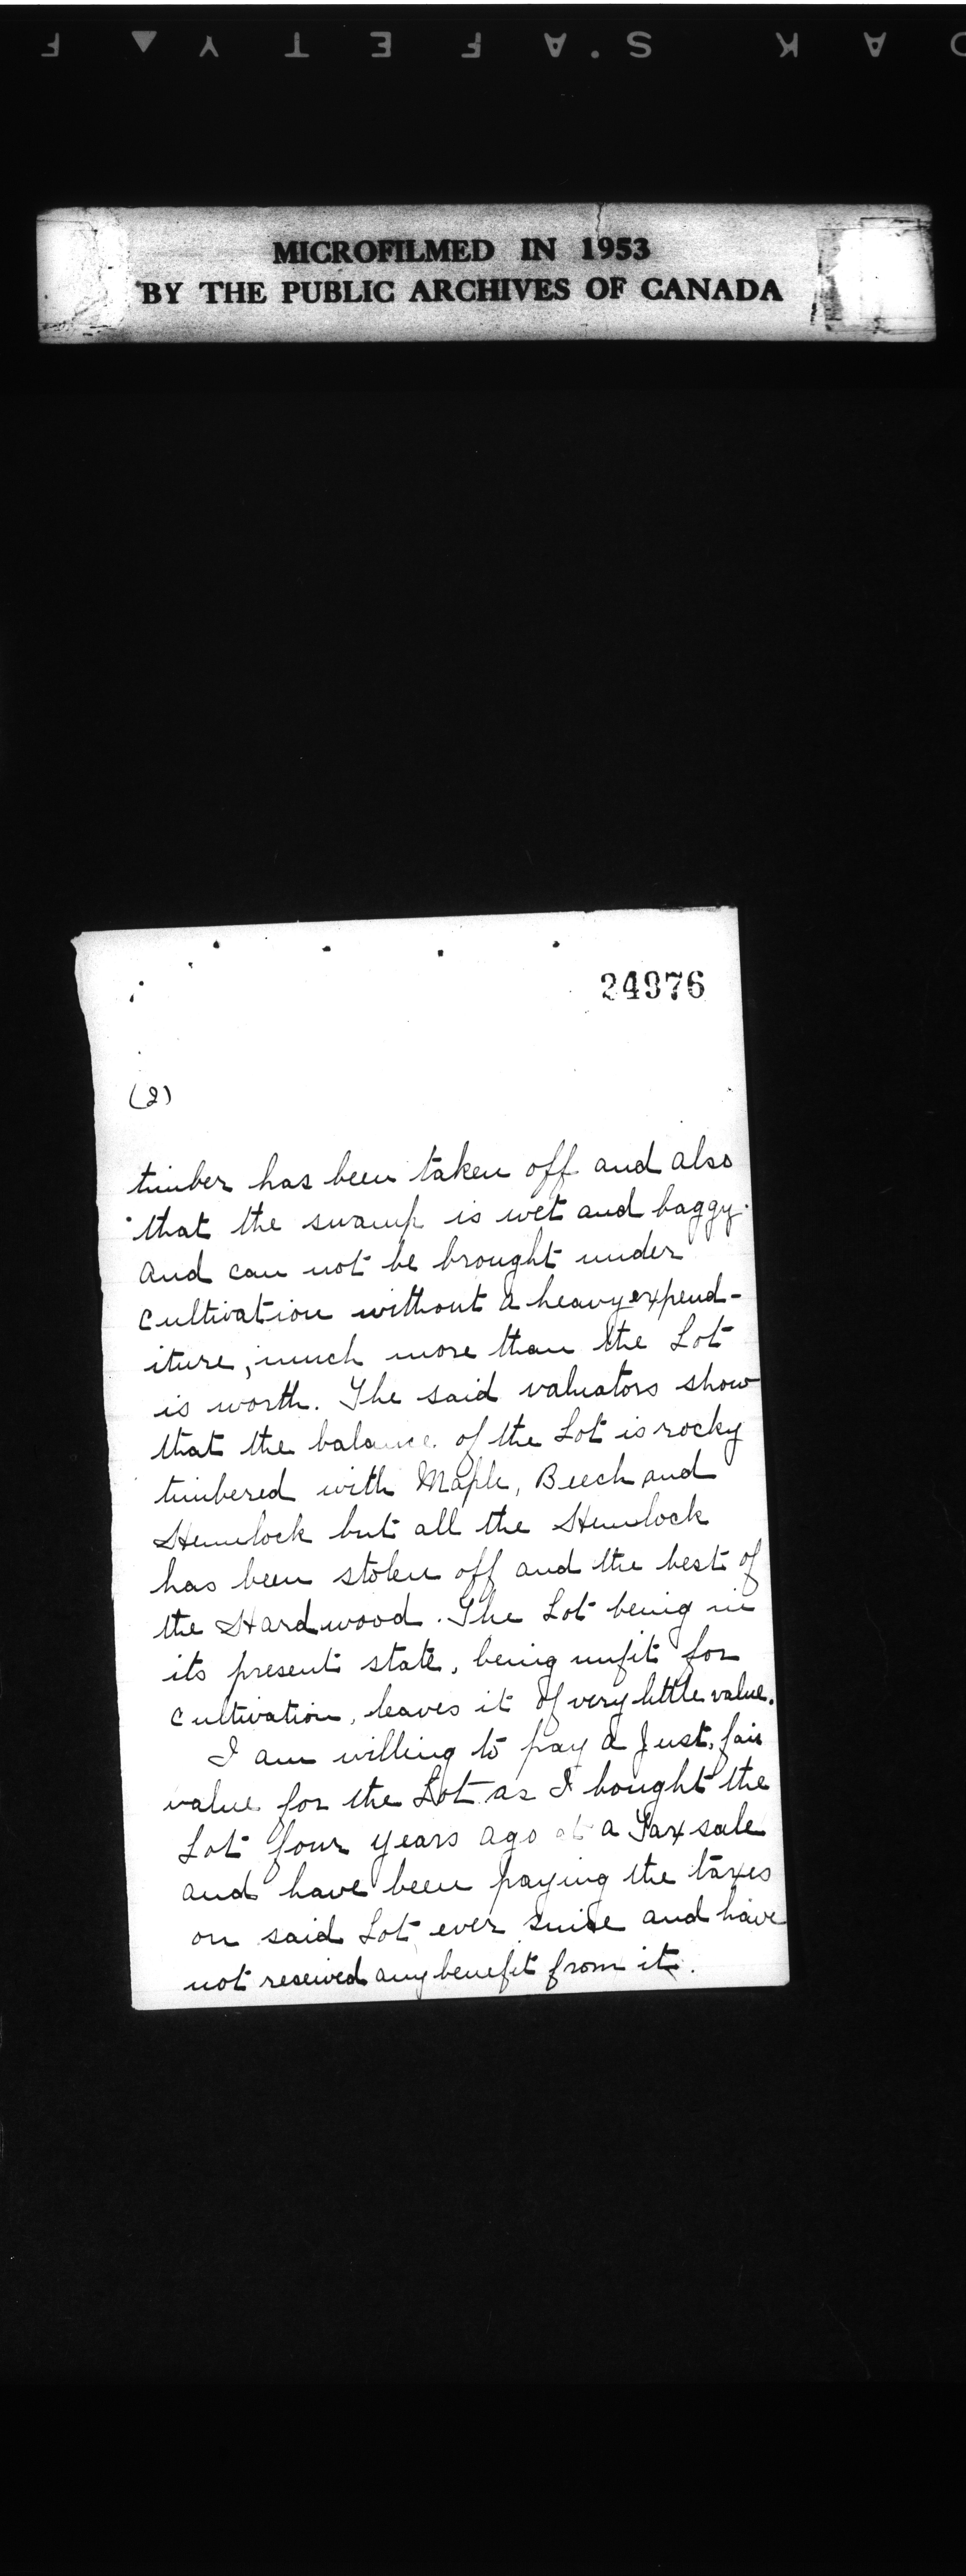 MICROFILMED IN 1953
BY THE PUBLIC ARCHIVES OF CANADA
24976
(2)
timber has been taken off and also
that the swamp is wet and baggy.
and can not be brought under
cultivation without a heavy expend-
iture, much more than the Lot
is worth. The said valuators show
that the balance of the Lot is rocky
timbered with Maple, Beech and
Hemlock but all the Hemlock
has been stolen off and the best of
the Hardwood. The Lot being in
its present state, being unfit for
cultivation, leaves it of very little value.
I am willing to pay a Just, fair
value for the Lot as I bought the
Lot four years ago at a Tax sale
and have been paying the taxes
on said Lot ever since and have
not reseived any benefit from it.